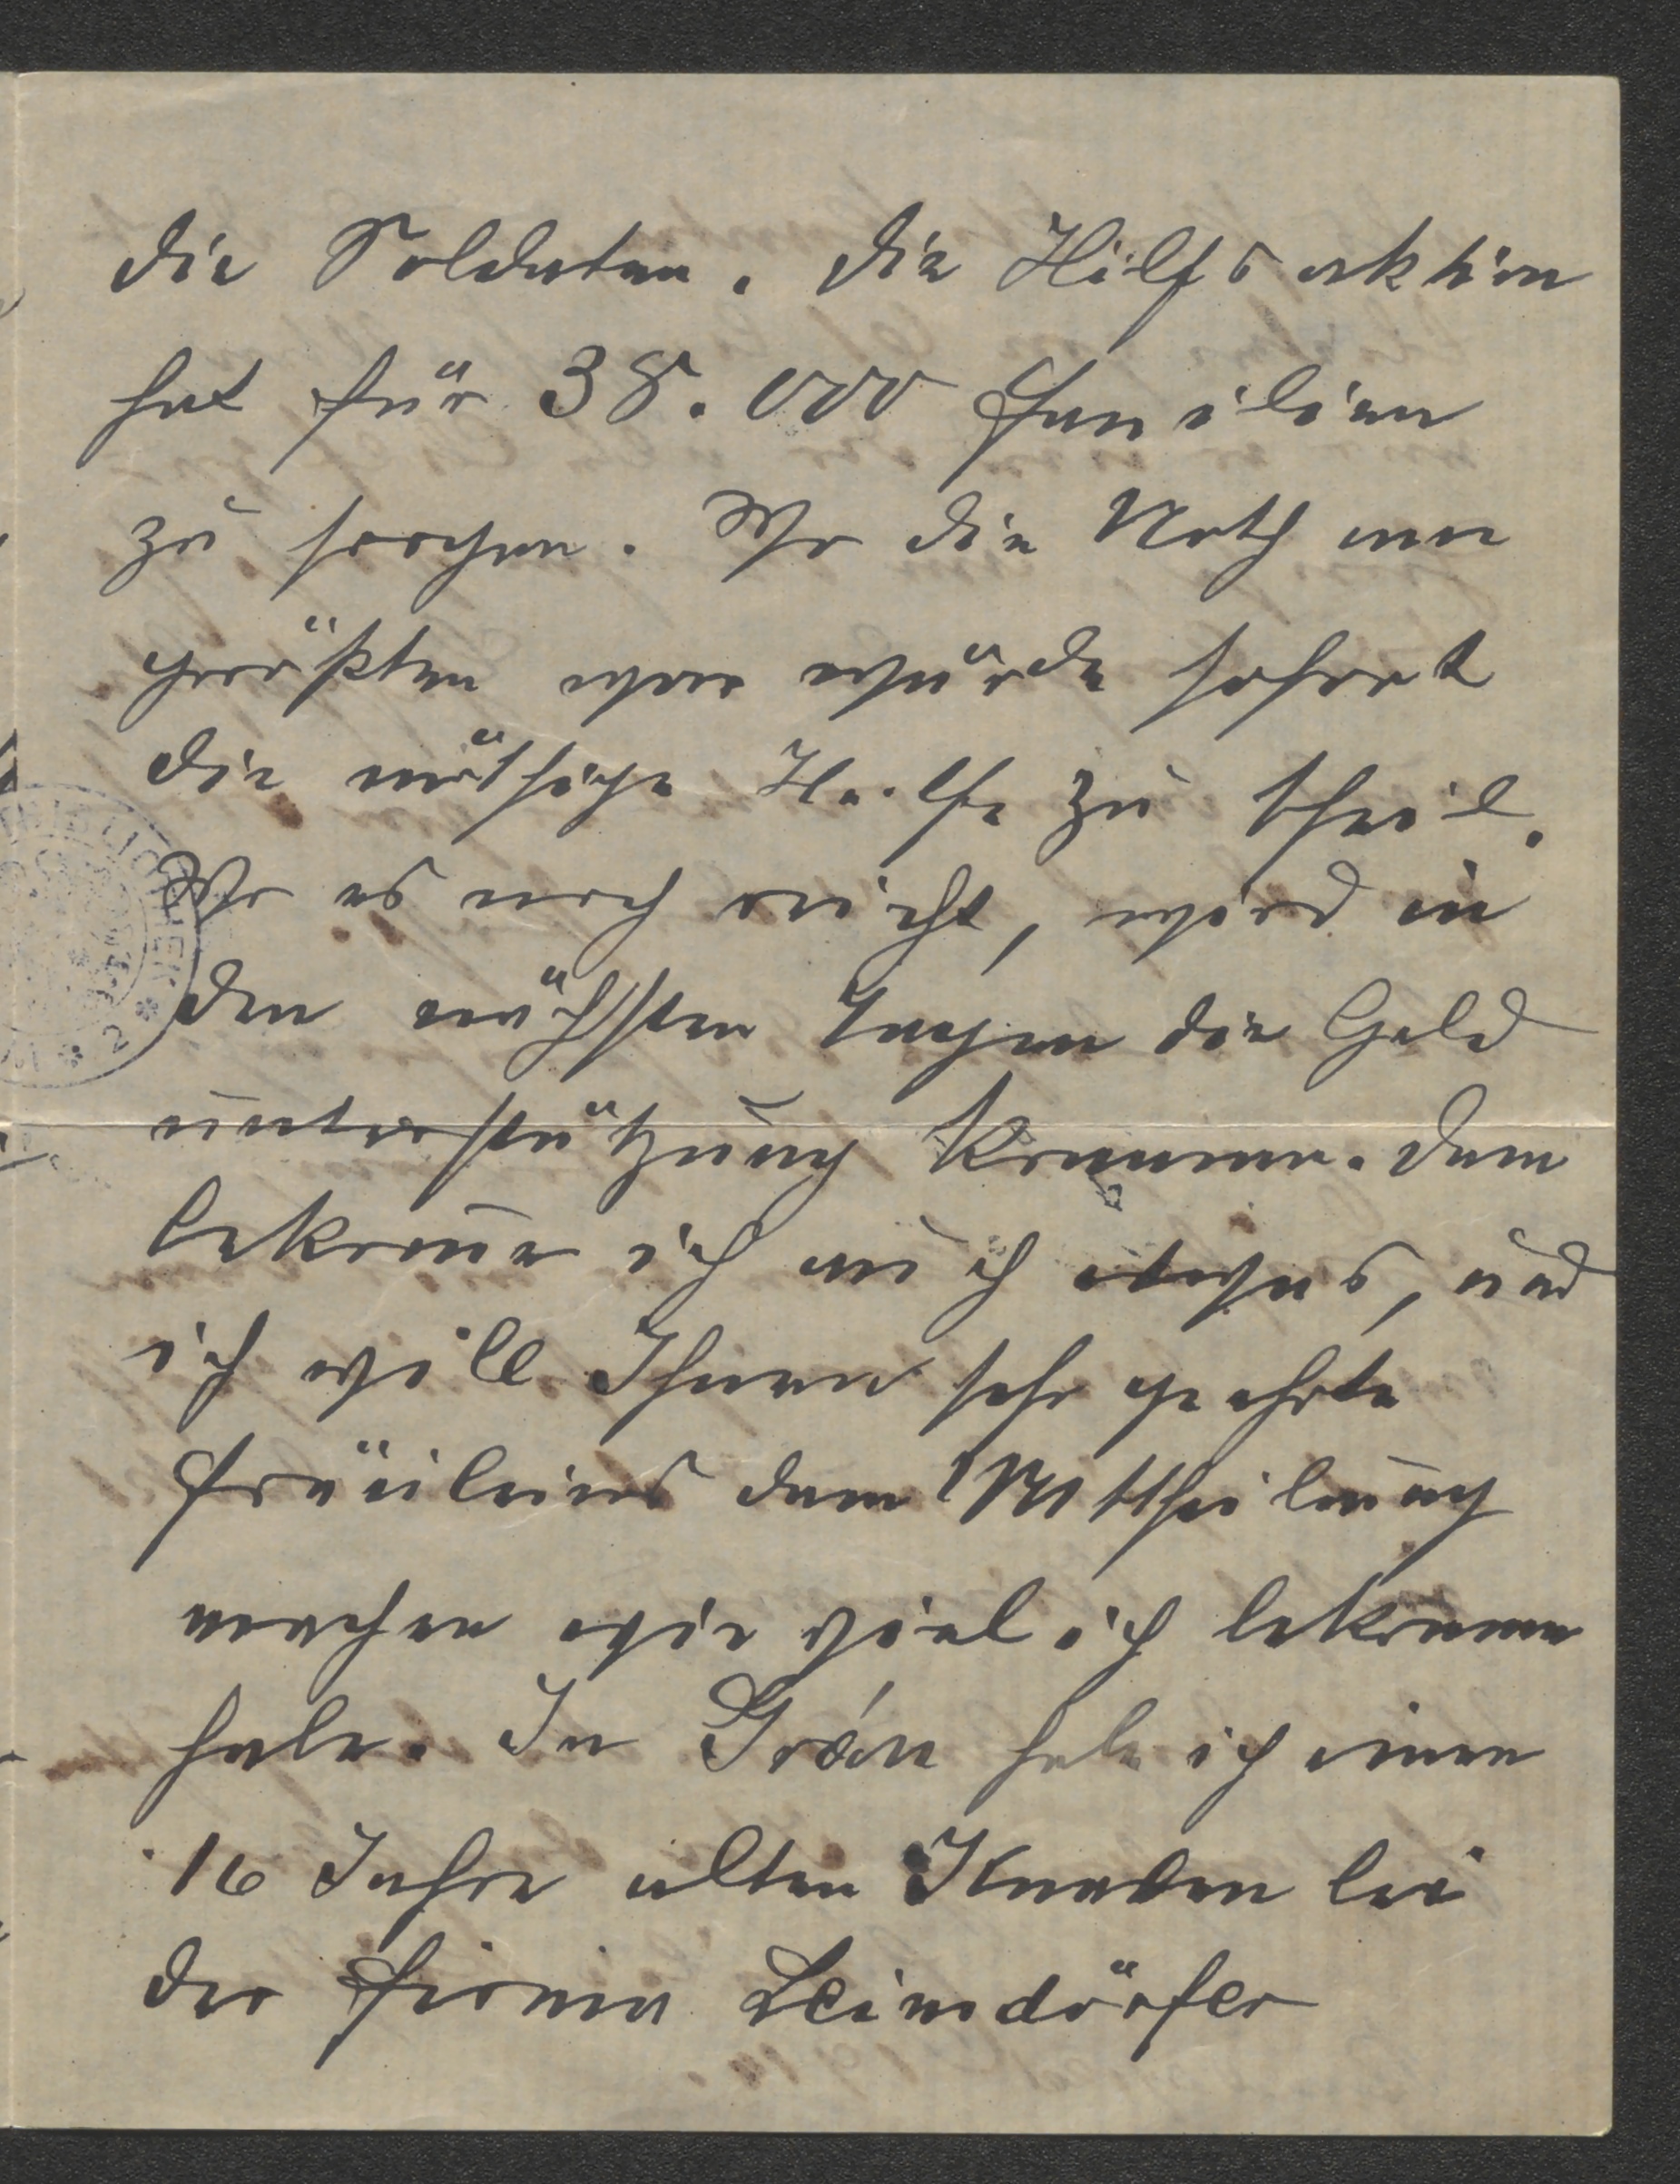 die Soldaten. Die Hilfsaktion
hat für 38.000 Familien
zu sorgen. Wo die Noth am
größten war würde sofort
die nöthige Hilfe zu theil.
Wo es noch nicht, wird in
den nächsten Tagen die Geld
unterstützung kommen. Dann
bekome ich auch etwas, und
ich will Ihnen sehr geehrte
Fräuleins dann Mittheilung
machen wie viel ich bekommen
habe. In Grán habe ich einen
16 Jahre alten Knaben bei
der Firma Leimdörfer